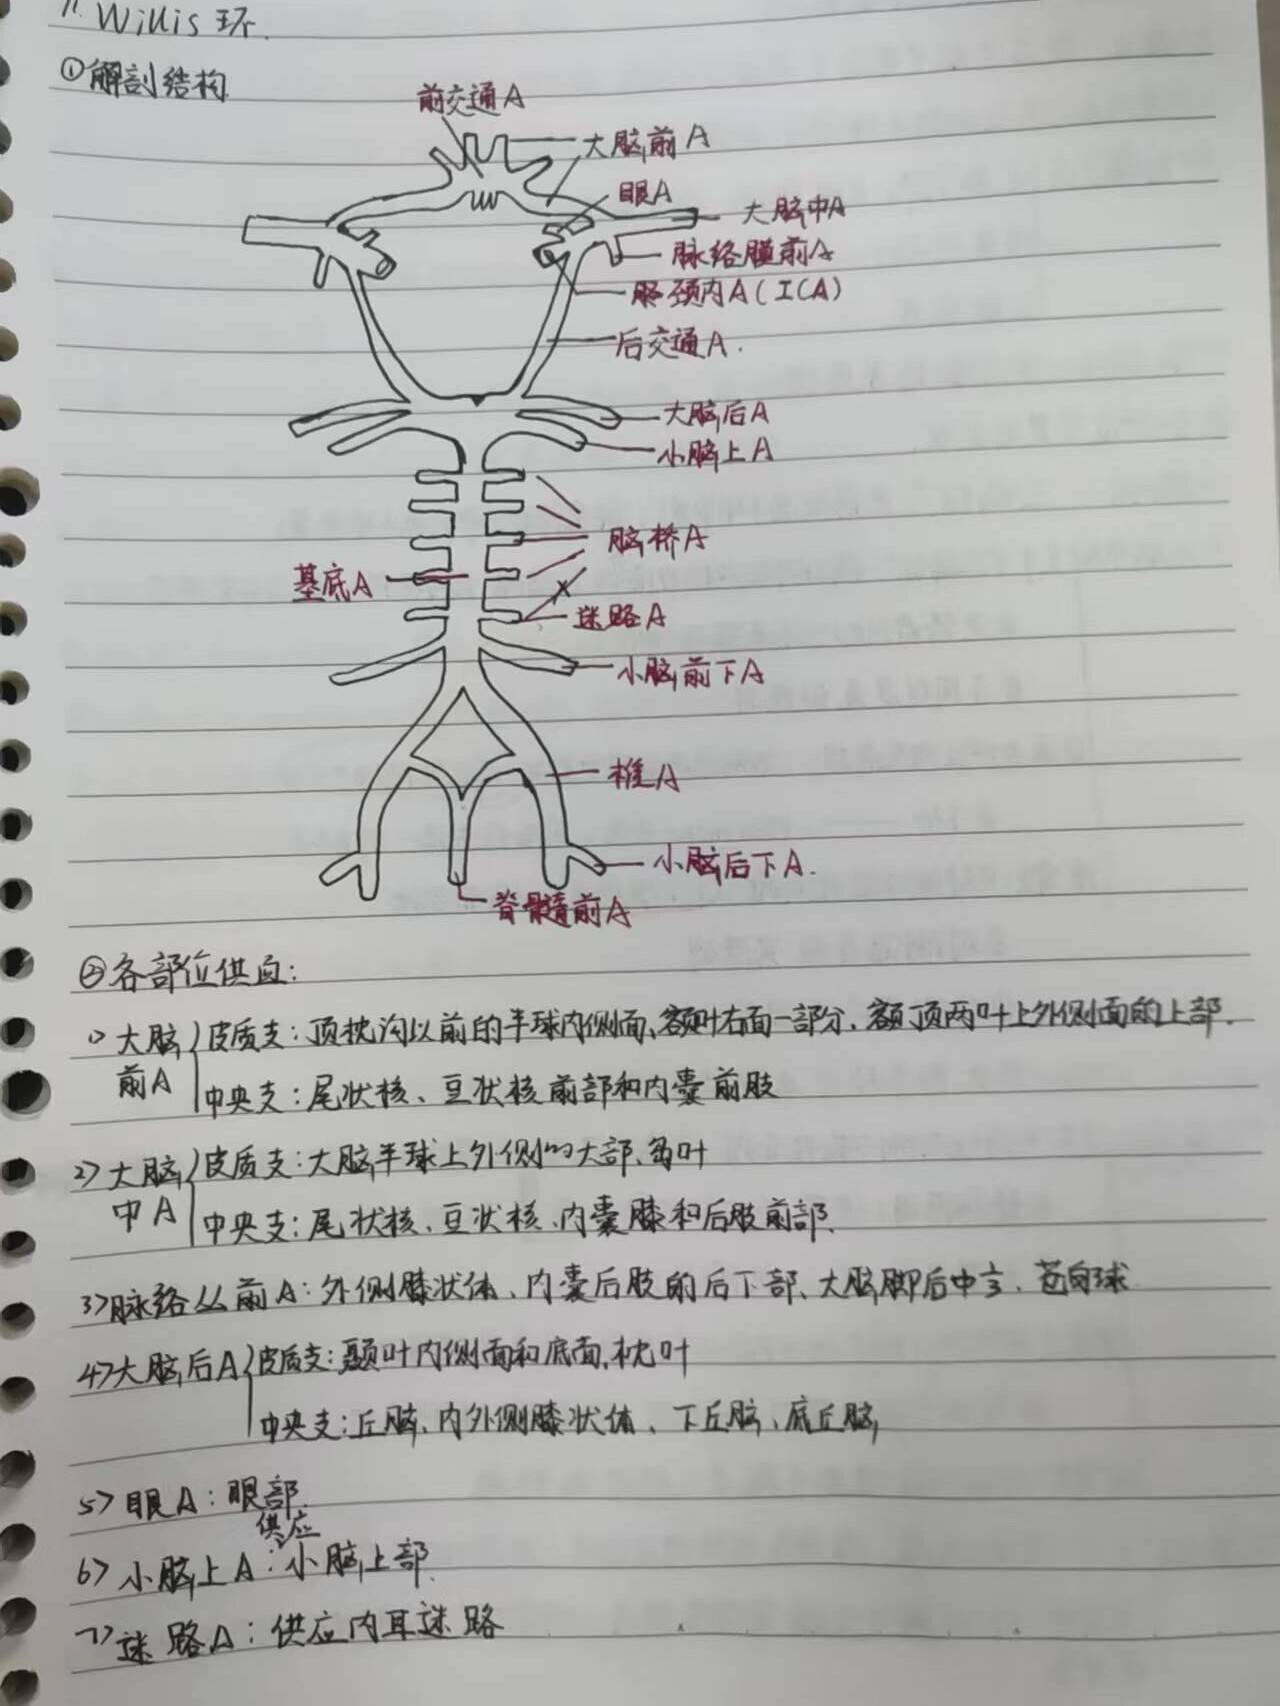 1. Willis 环.
①解剖结构
前交通A
大脑前A
眼A
大脑中A
脉络膜前A
颈内A(ICA)
后交通A.
大脑后A
小脑上A
脑桥A
基底A
迷路A
小脑前下A
椎A
小脑后下A.
脊髓前A
②各部位供血:
1>大脑前A
皮质支:顶枕沟以前的半球内侧面、额叶右面一部分、额顶两叶上外侧面的上部.
中央支:尾状核、豆状核前部和内囊前肢
2>大脑中A
皮质支:大脑半球上外侧的大部、岛叶
中央支:尾状核、豆状核、内囊膝和后肢前部.
3>脉络丛前A:外侧膝状体、内囊后肢的后下部、大脑脚后中⅓、苍白球
4>大脑后A
皮质支:颞叶内侧面和底面、枕叶
中央支:丘脑、内外侧膝状体、下丘脑、底丘脑
5>眼A:眼部.
6>小脑上A:供应小脑上部.
7>迷路A:供应内耳迷路